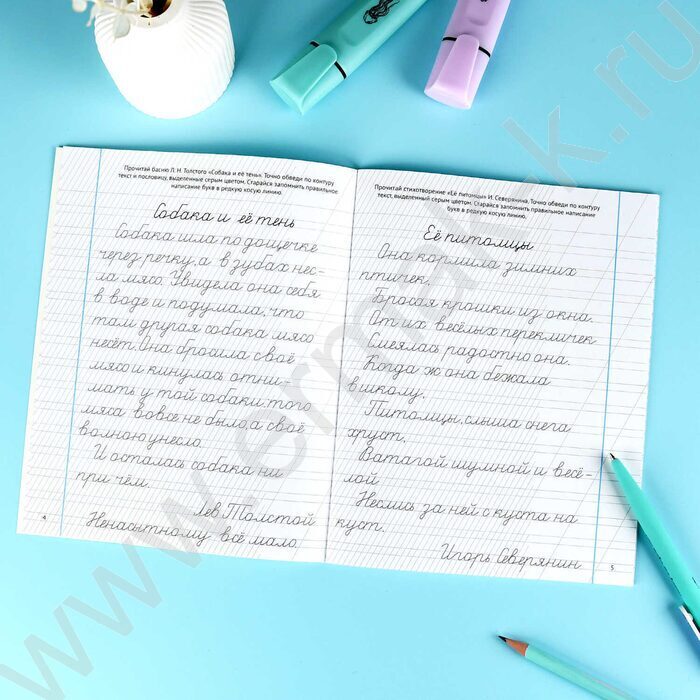 Прочитай басню Л. Н. Толстого «Собака и её тень». Точно обведи по контуру
текст и пословицу, выделенные серым цветом. Старайся запомнить правильное
написание букв в редкую косую линию.
Собака и её тень
Собака шла по дощечке
через речку, а в зубах нес-
ла мясо. Увидела она себя
в воде и подумала, что
там другая собака мясо
несёт. Она бросила своё
мясо и кинулась отни-
мать у той собаки: того
мяса вовсе не было, а своё
волною унесло.
И осталась собака ни
при чём.
Лев Толстой
Ненасытному всё мало.
4
Прочитай стихотворение «Её питомцы» И. Северянина. Точно обведи по контуру
текст, выделенный серым цветом. Старайся запомнить правильное написание
букв в редкую косую линию.
Её питомцы
Она кормила зимних
птичек,
Бросая крошки из окна.
От их весёлых перекличек
Смеялась радостно она.
Когда ж она бежала
в школу,
Питомцы, слыша снега
хруст,
Ватагой шумной и весё-
лой
Неслись за ней с куста на
куст.
Игорь Северянин
5
www.ermak-k.ru